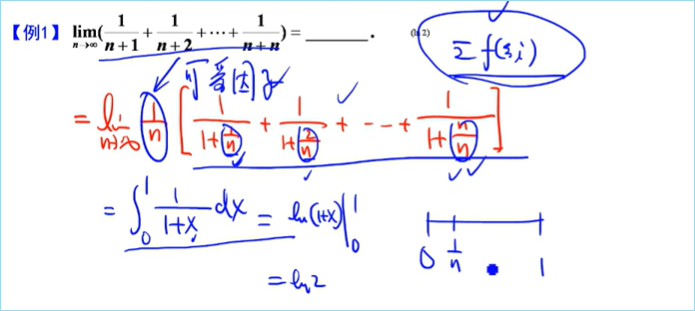 【例1】 lim_{n→∞}(1/(n+1) + 1/(n+2) + ⋯ + 1/(n+n)) = ______. (ln 2)
Σ f(ξi)
可爱因子
= lim_{n→∞} 1/n [ 1/(1+1/n) + 1/(1+2/n) + --- + 1/(1+n/n) ]
= ∫₀¹ 1/(1+x) dx = ln(1+x) |₀¹
0 1/n 1
= ln2